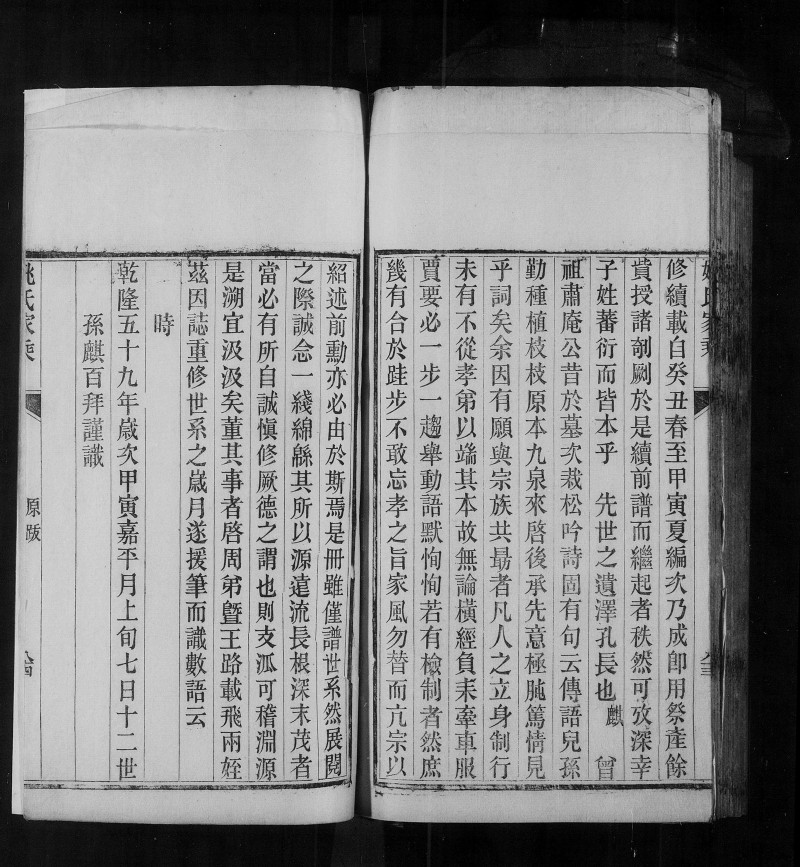 姚氏家乘
修續載自癸丑春至甲寅夏編次乃成卽用祭產餘
貲授諸剞劂於是續前譜而繼起者秩然可攷深幸
子姓蕃衍而皆本乎　先世之遺澤孔長也麒　曾
祖肅庵公昔於墓次栽松吟詩固有句云傳語兒孫
勤種植枝枝原本九泉來啓後承先意極肫篤情見
乎詞矣余因有願與宗族共最者凡人之立身制行
未有不從孝弟以端其本故無論橫經負耒牽車服
賈要必一步一趨舉動語默恂恂若有檢制者然庶
幾有合於跬步不敢忘孝之旨家風勿替而亢宗以
紹述前勳亦必由於斯焉是冊雖僅譜世系然展閱
之際誠念一綫綿緜其所以源遠流長根深末茂者
當必有所自誠愼修厥德之謂也則支派可稽淵源
是溯宜汲汲矣董其事者啓周弟曁王路載飛兩姪
茲因誌重修世系之歲月遂援筆而識數語云
時
乾隆五十九年歲次甲寅嘉平月上旬七日十二世
孫麒百拜謹識
姚氏家乘
原跋